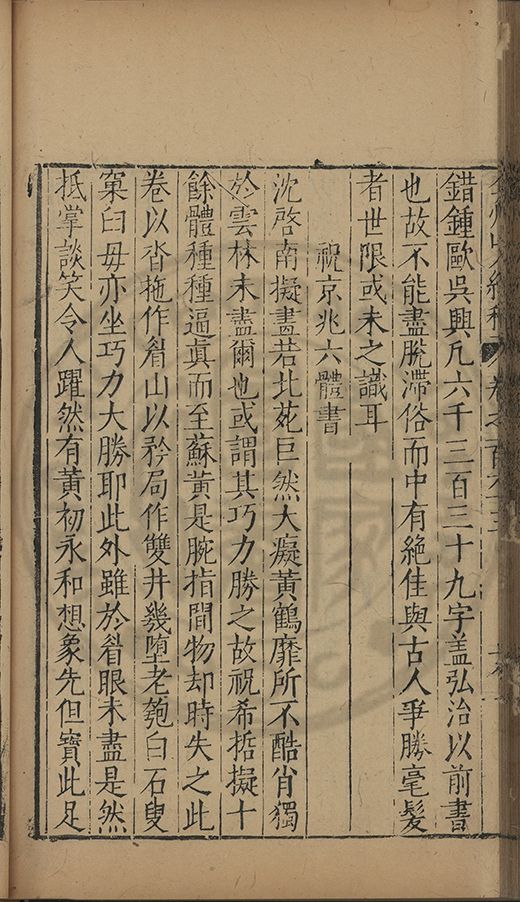 錯鍾歐吳興凡六千三百三十九字蓋弘治以前書
也故不能盡脫滯俗而中有絕佳與古人爭勝毫髮
者世限或未之識耳
祝京兆六體書
沈啓南擬畫若北苑巨然大癡黃鶴靡所不酷肖獨
於雲林未盡爾也或謂其巧力勝之故祝希悊擬十
餘體種種逼眞而至蘇黃是腕指間物却時失之此
卷以沓拖作眉山以矜局作雙井幾墮老匏白石叟
窠臼毋亦坐巧力大勝耶此外雖於眉眼未盡是然
抵掌談笑令人躍然有黃初永和想象先但寶此足